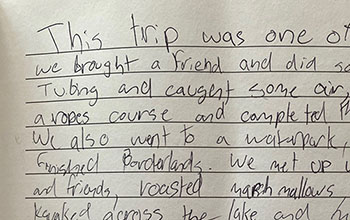 This trip was one of
we brought a friend and did so
Tubing and caught some air,
a ropes course and completed
We also went to a waterpark,
finished Borderlands. We met up
and friends, roasted marshmallows
Kayaked across the lake and